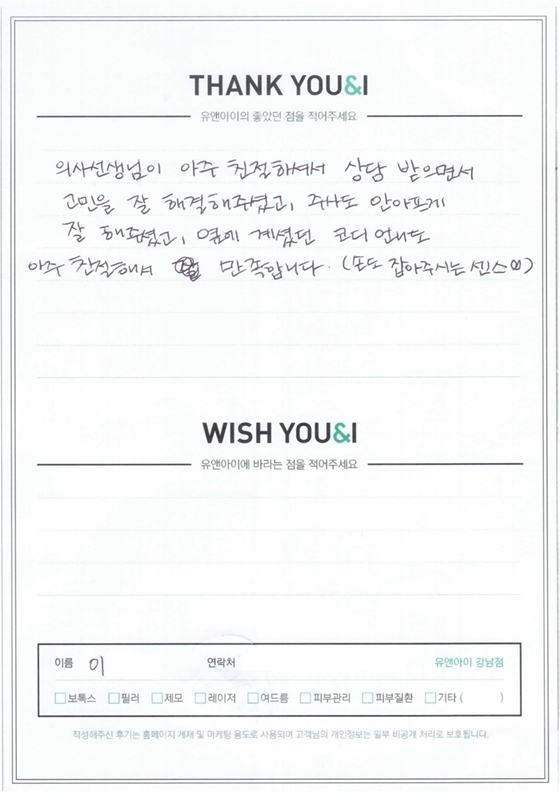 THANK YOU&I
유앤아이의 좋았던 점을 적어주세요
의사선생님이 아주 친절하셔서 상담 받으면서
고민을 잘 해결해주셨고, 주사도 안아프게
잘 해주셨고, 옆에 계셨던 코디언니도
아주 친절해서 만족합니다. (손도 잡아주시는 센스)
WISH YOU&I
유앤아이에 바라는 점을 적어주세요
이름 이 연락처 유앤아이 강남점
보톡스 필러 제모 레이저 여드름 피부관리 피부질환 기타 ( )
작성해주신 후기는 홈페이지 게재 및 마케팅 용도로 사용되며 고객님의 개인정보는 일부 비공개 처리로 보호됩니다.